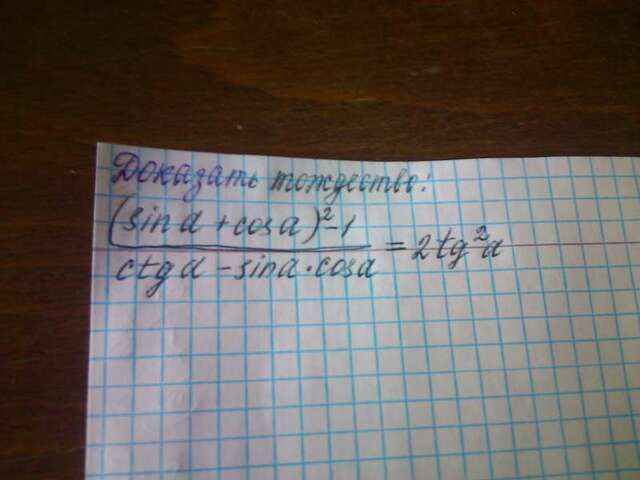 Доказать тождество:
(sin α + cos α)² - 1
ctg α - sin α · cos α = 2 tg² α